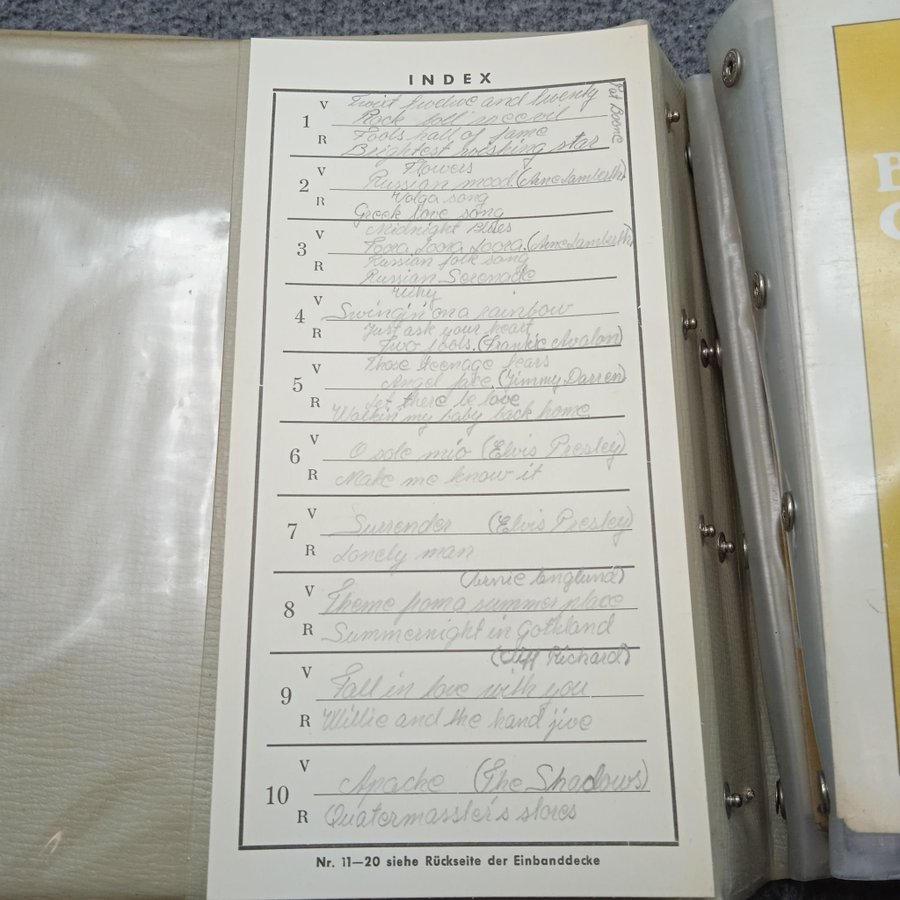 INDEX
1 V Twixt twelve and twenty
Rock boll weevil
R Fools hall of fame
Brightest wishing star
Pat Boone
2 V Flowers
Russian mood. (Arne Lamberth)
R Volga song
Greek love song
3 V Midnight Blues
Toora Loora Loora. (Arne Lamberth)
R Russian folk song
Russian Serenade
4 V Why
Swingin' on a rainbow
R Just ask your heart
Two fools. (Frankie Avalon)
5 V Those teenage tears
Angel face. (Jimmy Darren)
R Let there be love
Walkin' my baby back home
6 V O sole mio (Elvis Presley)
R Make me know it
7 V Surrender (Elvis Presley)
R Lonely man
(Ernie Englund)
8 V Theme from a summer place
R Summernight in Gotkland
(Cliff Richard)
9 V Fall in love with you
R Willie and the hand jive
10 V Apache (The Shadows)
R Quatermasster's stores
Nr. 11—20 siehe Rückseite der Einbanddecke